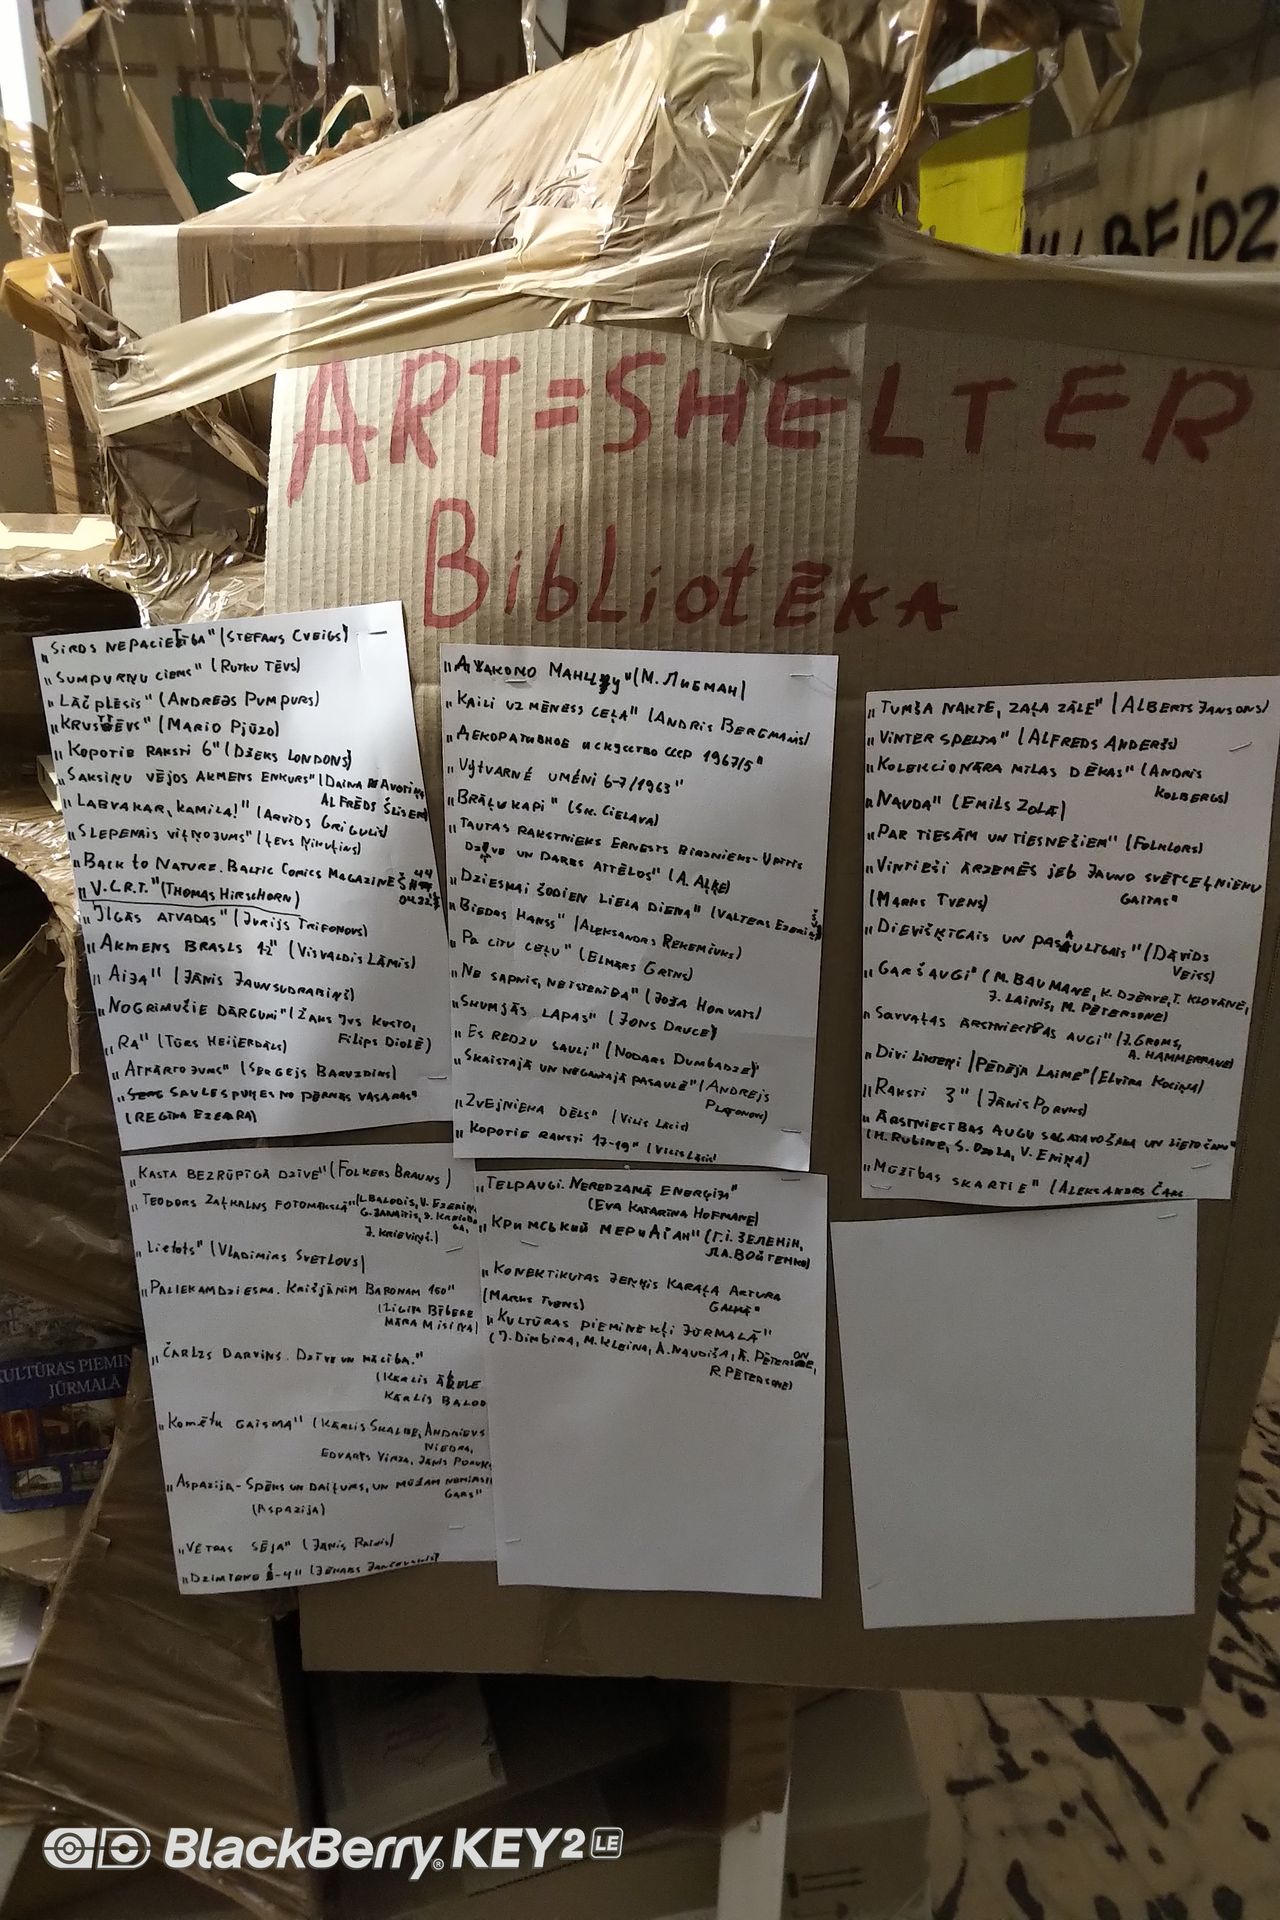 BEIDZ
ART=SHELTER
BibLiotĒKA
„SIRDS NEPACIETĪBA" (STEFANS CVEIGS)
„SUMPURŅU CIEMS" (RUTKU TĒVS)
„LĀČPLĒSIS" (ANDREJS PUMPURS)
„KRUSTTĒVS" (MARIO PJŪZO)
„KOPOTIE RAKSTI 6" (DŽEKS LONDONS)
„SAKSIŅU VĒJOS AKMENS ENKURS" (DAINA AVOTIŅA
ALFRĒDS
„LABVAKAR, KAMILA!" (ARVĪDS GRIGULIS)
„SLEPENAIS VIĻŅOJUMS" (ĻEVS ŅIKUĻINS)
„BACK to NATURE. BALTIC COMICS MAGAZINE Š! #44
„V.C.R.T." (THOMAS HIRSCHORN)
„ILGĀS ATVADAS" (JURIJS TRIFONOVS)
„AKMENS BRASLS 1-2" (VISVALDIS LĀMIS)
„AIJA" (JĀNIS JAUNSUDRABIŅŠ)
„NOGRIMUŠIE DĀRGUMI" (ŽAKS IVS KUSTO,
FILIPS DIOLĒ)
„RA" (TŪRS HEIJERDĀLS)
„ATKĀRTOJUMS" (SERGEJS BARUZDINS)
SAULESPUĶES NO PĒRNĀS VASARAS"
(REGĪNA EZERA)
„KASTA BEZRŪPĪGĀ DZĪVE" (FOLKERS BRAUNS)
„TEODORS ZAĻKALNS FOTOMĀKSLĀ" (L. BALODIS, V. EZERIŅ
G. JANAITIS,
J. KRIEVIŅŠ.)
„Lietots" (VLADIMIRS SVETLOVS)
„PALIEKAMDZIESMA. KRIŠJĀNIM BARONAM 150"
(LIGITA BĪBERE
MĀRA MISIŅA)
„ČĀRLZS DARVINS. DZĪVE UN MĀCĪBA."
(KĀRLIS ĀBELE
KĀRLIS BALOD
„KOMĒTU GAISMĀ" (KĀRLIS SKALBE, ANDRIEVS
NIEDRA,
EDVARTS VIRZA, JĀNIS PORUK
„ASPAZIJA - SPĒKS UN DAIĻUMS, UN MŪŽAM NEMIRSI
GARS"
(ASPAZIJA)
„VĒTRAS SĒJA" (JĀNIS RAINIS)
„DZIMTENE 1-4" (
„ДЖАКОМО МАНЦУ" (М. ЛИБМАН)
„KAILI UZ MĒNESS CEĻA" (ANDRIS BERGMANIS)
„ДЕКОРАТИВНОЕ ИСКУССТВО СССР 1967/5"
„VÝTVARNÉ UMĚNI 6-7/1963"
„BRĀĻU KAPI" (SK. CIELAVA)
„TAUTAS RAKSTNIEKS ERNESTS BIRZNIEKS-UPĪTIS
DZĪVE UN DARBS ATTĒLOS" (A. AĻĶE)
„DZIESMAI ŠODIEN LIELA DIENA" (VALTERS EZERIŅŠ)
„BIEDRS HANSS" (ALEKSANDRS REKEMČUKS)
„PA CITU CEĻU" (ELMĀRS GRĪNS)
„NE SAPNIS, NE ĪSTENĪBA" (JOŽA HORVATS)
„SKUMJĀS LAPAS" (JONS DRUCE)
„ES REDZU SAULI" (NODARS DUMBADZE)
„SKAISTAJĀ UN NEGANTAJĀ PASAULĒ" (ANDREJS
PLATONOVS)
„ZVEJNIEKA DĒLS" (VILIS LĀCIS)
„KOPOTIE RAKSTI 17-19" (VILIS LĀCIS)
„TELPAUGI. NEREDZAMĀ ENERĢIJA"
(EVA KATARĪNA HOFMANE)
„КРИМСЬКИЙ МЕРИДІАН" (Г.І. ЗЕЛЕНІН,
Л.А. ВОЙТЕНКО)
„KONEKTIKUTAS JEŅĶIS KARAĻA ARTURA
GALMĀ"
(MARKS TVENS)
„KULTŪRAS PIEMINEKĻI JŪRMALĀ"
(J. DIMBIRA, M. KLEINA, A. NAUDIŠA, Ā. PĒTERSONE,
R. PĒTERSONE)
„TUMŠA NAKTE, ZAĻA ZĀLE" (ALBERTS JANSONS)
„VINTERSPELTA" (ALFREDS ANDERŠS)
„KOLEKCIONĀRA MĪLAS DĒKAS" (ANDRIS
KOLBERGS)
„NAUDA" (EMILS ZOLĀ)
„PAR TIESĀM UN TIESNEŠIEM" (FOLKLORS)
„VIENTIEŠI ĀRZEMĒS JEB JAUNO SVĒTCEĻNIEKU
GAITAS"
(MARKS TVENS)
„DIEVIŠĶĪGAIS UN PASAULĪGAIS" (DĀVIDS
VEISS)
„GARŠAUGI" (M. BAUMANE, K. DZĒRVE, T. KLOVĀNE,
J. LAINIS, M. PĒTERSONE)
„SAVVAĻAS ĀRSTNIECĪBAS AUGI" (J. GROMS,
A. HAMMERMANE)
„DIVI LIKTEŅI (PĒDĒJĀ LAIME" (ELVĪRA KOCIŅA)
„RAKSTI 3" (JĀNIS PORUKS)
„ĀRSTNIECĪBAS AUGU SAGATAVOŠANA UN LIETOŠANA"
(H. RUBINE, S. OZOLA, V. ENIŅA)
„MŪŽĪBAS SKARTIE" (ALEKSANDRS ČAK
KULTŪRAS PIEMIN
JŪRMALĀ
BlackBerry® KEY2 LE